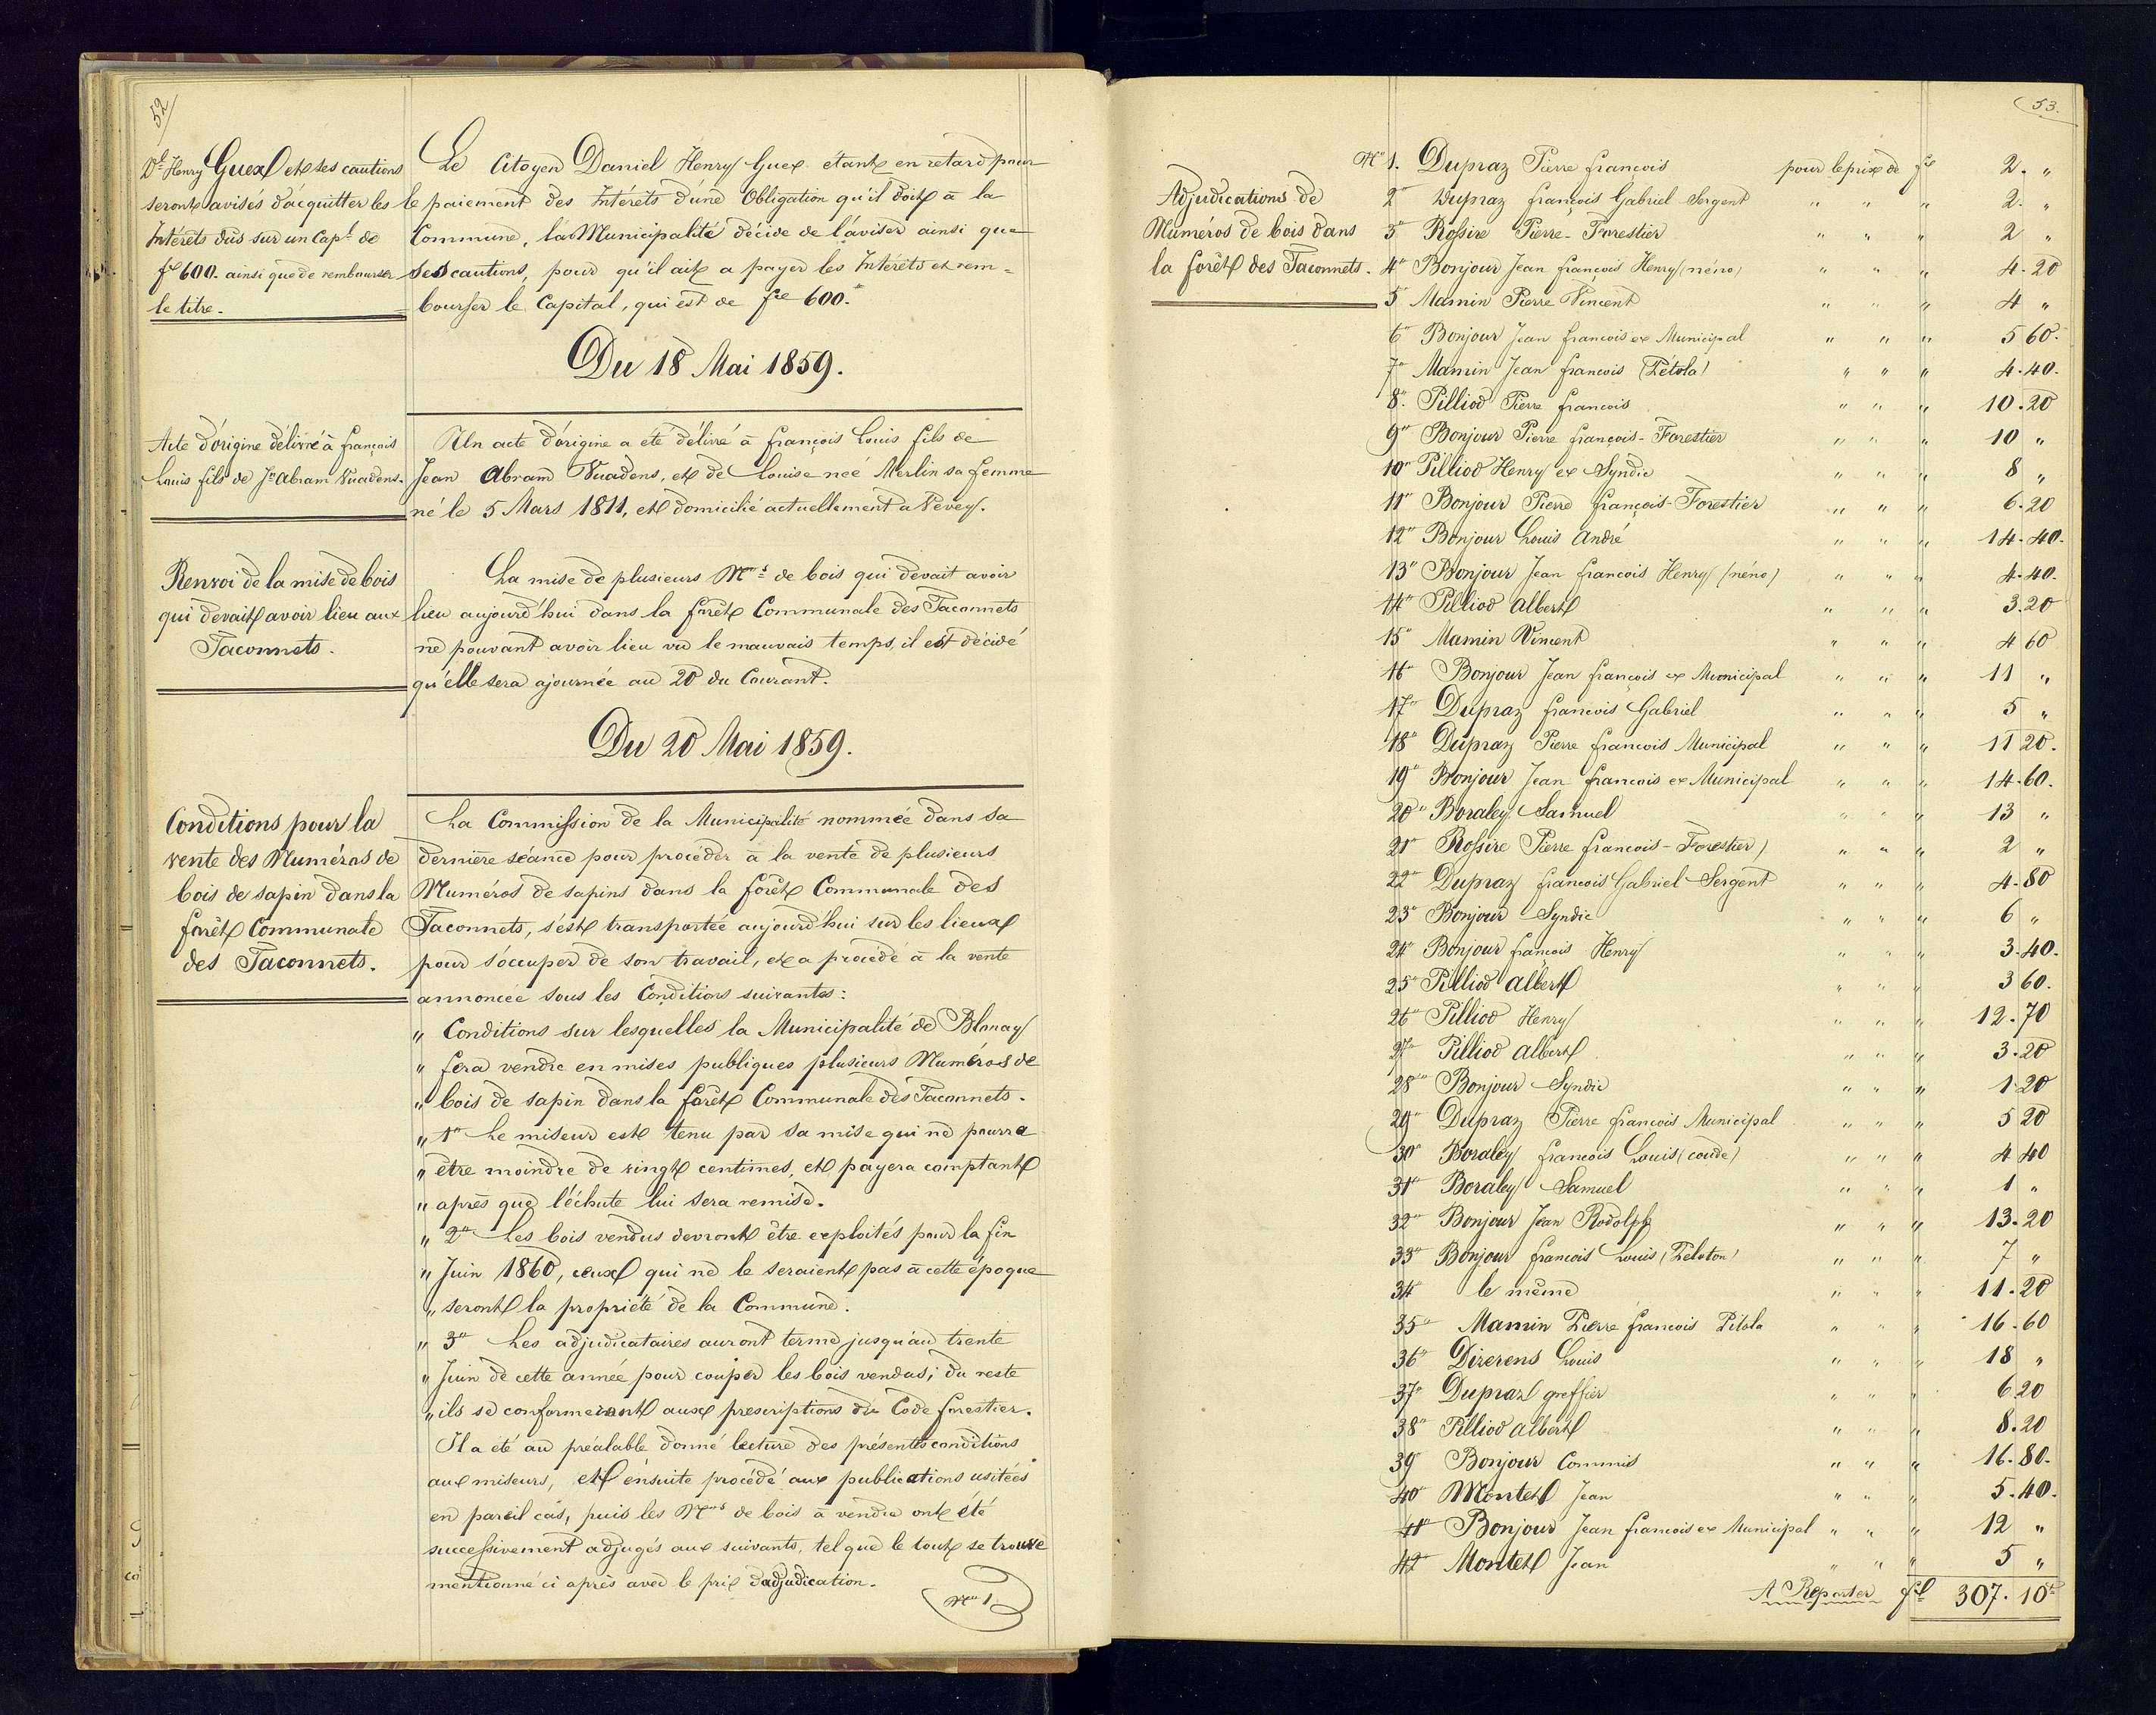 52
Dl Henry Guex et ses cautions
seront avisés d'acquitter les
Intérêts dus sur un Capl de
fce 600. ainsi que de rembourser
le titre.
Le Citoyen Daniel Henry Guex étant en retard pour
le paiement des Intérêts d'une Obligation qu'il doit à la
Commune, la Municipalité décide de l'aviser ainsi que
ses cautions, pour qu'il ait a payer les Intérêts et rem=
bourser le Capital, qui est de fce 600."
Du 18 Mai 1859.
Acte d'origine délivré à françois
Louis fils de Jn Abram Vuadens.
Un acte d'origine a été délivré à françois Louis fils de
Jean Abram Vuadens, et de Louise neé Merlin sa femme
né le 5 Mars 1811, et domicilié actuellement a Vevey.
Renvoi de la mise de bois
qui devait avoir lieu aux
Taconnets.
La mise de plusieurs Nos de bois qui devait avoir
lieu aujourd'hui dans la forêt Communale des Taconnets
ne pouvant avoir lieu vu le mauvais temps, il est décidé
qu'elle sera ajournée au 20 du Courant.
Du 20 Mai 1859.
Conditions pour la
vente des Numéros de
bois de sapin dans la
forêt Communale
des Taconnets.
La Commission de la Municipalité nommée dans sa
dernière séance pour procéder à la vente de plusieurs
Numéros de sapins dans la forêt Communale des
Taconnets, s'est transportée aujourd'hui sur les lieux
pour s'occuper de son travail, et a procédé à la vente
annoncée sous les Conditions suivantes:
" Conditions sur lesquelles la Municipalité de Blonay
" fera vendre en mises publiques plusieurs Numéros de
" bois de sapin dans la forêt Communale des Taconnets.
" 1° Le miseur est tenu par sa mise qui ne pourra
" être moindre de vingt centimes, et payera comptant
" après que l'échute lui sera remise.
" 2° Les bois vendus devront être exploités pour la fin
" Juin 1860, ceux qui ne le seraient pas à cette époque
" seront la propriété de la Commune.
" 3° Les adjudicataires auront terme jusqu'au trente
" Juin de cette année pour couper les bois vendus; du reste
" ils se conformeront aux prescriptions du Code forestier.
Il a été au préalable donné lecture des présentes conditions
aux miseurs, et ensuite procédé aux publications usitées
en pareil cas, puis les Nos de bois à vendre ont été
successivement adjugés aux suivants, tel que le tout se trouve
mentionné ci après avec le prix d'adjudication.
No 1
53.
Adjudications de
Numéros de bois dans
la forêt des Taconnets.
No 1. Dupraz Pierre francois pour le prix de fce 2. "
2° Dupraz françois Gabriel Sergent " " " 2. "
3° Rossire Pierre-Forestier " " " 2 "
4° Bonjour Jean francois Henry (néno) " " " 4.20
5° Mamin Pierre Vincent " " " 4 "
6° Bonjour Jean francois ex Municipal " " " 5 60.
7° Mamin Jean francois (Pétola) " " " 4.40.
8° Pilliod Pierre francois " " " 10.20
9° Bonjour Pierre françois-Forestier " " " 10 "
10° Pilliod Henry ex Syndic " " " 8 "
11° Bonjour Pierre françois-Forestier " " " 6.20
12° Bonjour Louis André " " " 14.40.
13° Bonjour Jean francois Henry (néno) " " " 4.40.
14° Pilliod Albert " " " 3.20
15° Mamin Vincent " " " 4 60
16° Bonjour Jean françois ex Municipal " " " 11 "
17° Dupraz francois Gabriel " " " 5 "
18° Dupraz Pierre francois Municipal " " " 11 20.
19° Bonjour Jean francois ex Municipal " " " 14.60.
20° Boraley Samuel " " " 13 "
21° Rossire Pierre francois-Forestier) " " " 2 "
22° Dupraz francois Gabriel Sergent " " " 4.80
23° Bonjour Syndic " " " 6 "
24° Bonjour françois Henry " " " 3.40.
25° Pilliod Albert " " " 3 60.
26° Pilliod Henry " " " 12.70
27° Pilliod Albert " " " 3.20
28° Bonjour Syndic " " " 1 20
29° Dupraz Pierre francois Municipal " " " 5 20
30° Boraley francois Louis (coude) " " " 4 40
31° Boraley Samuel " " " 1 "
32° Bonjour Jean Rodolph " " " 13.20
33° Bonjour francois Louis (Peloton) " " " 7 "
34° le même " " " 11.20
35° Mamin Pierre francois Pétola " " " 16.60
36° Dizerens Louis " " " 18 "
37° Dupraz greffier " " " 6 20
38° Pilliod Albert " " " 8.20
39 Bonjour Commis " " " 16.80.
40° Montet Jean " " " 5.40.
41° Bonjour Jean francois ex Municipal " " " 12 "
42° Montet Jean " " " 5 "
A Reporter fce 307.10